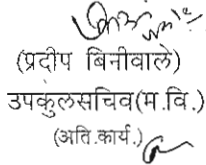 (प्रदीप बिनीवाले)
उपकुलसचिव(म.वि.)
(अति.कार्य.)